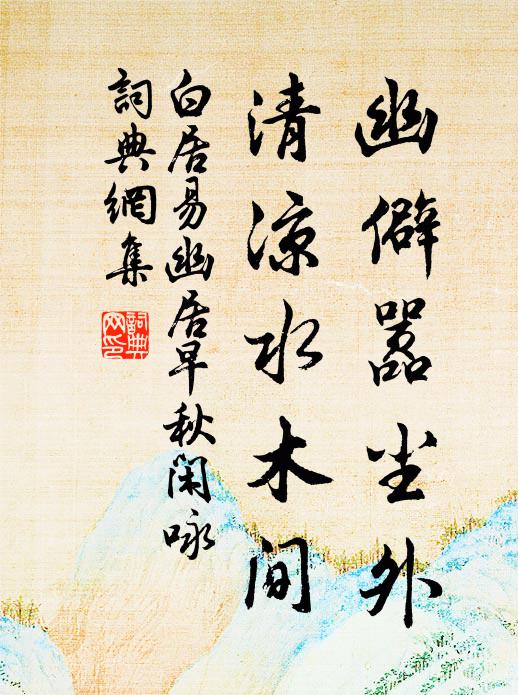 幽僻嚣尘外
清凉水木间
白居易幽居早秋闲咏
詞典網集
詞典网印